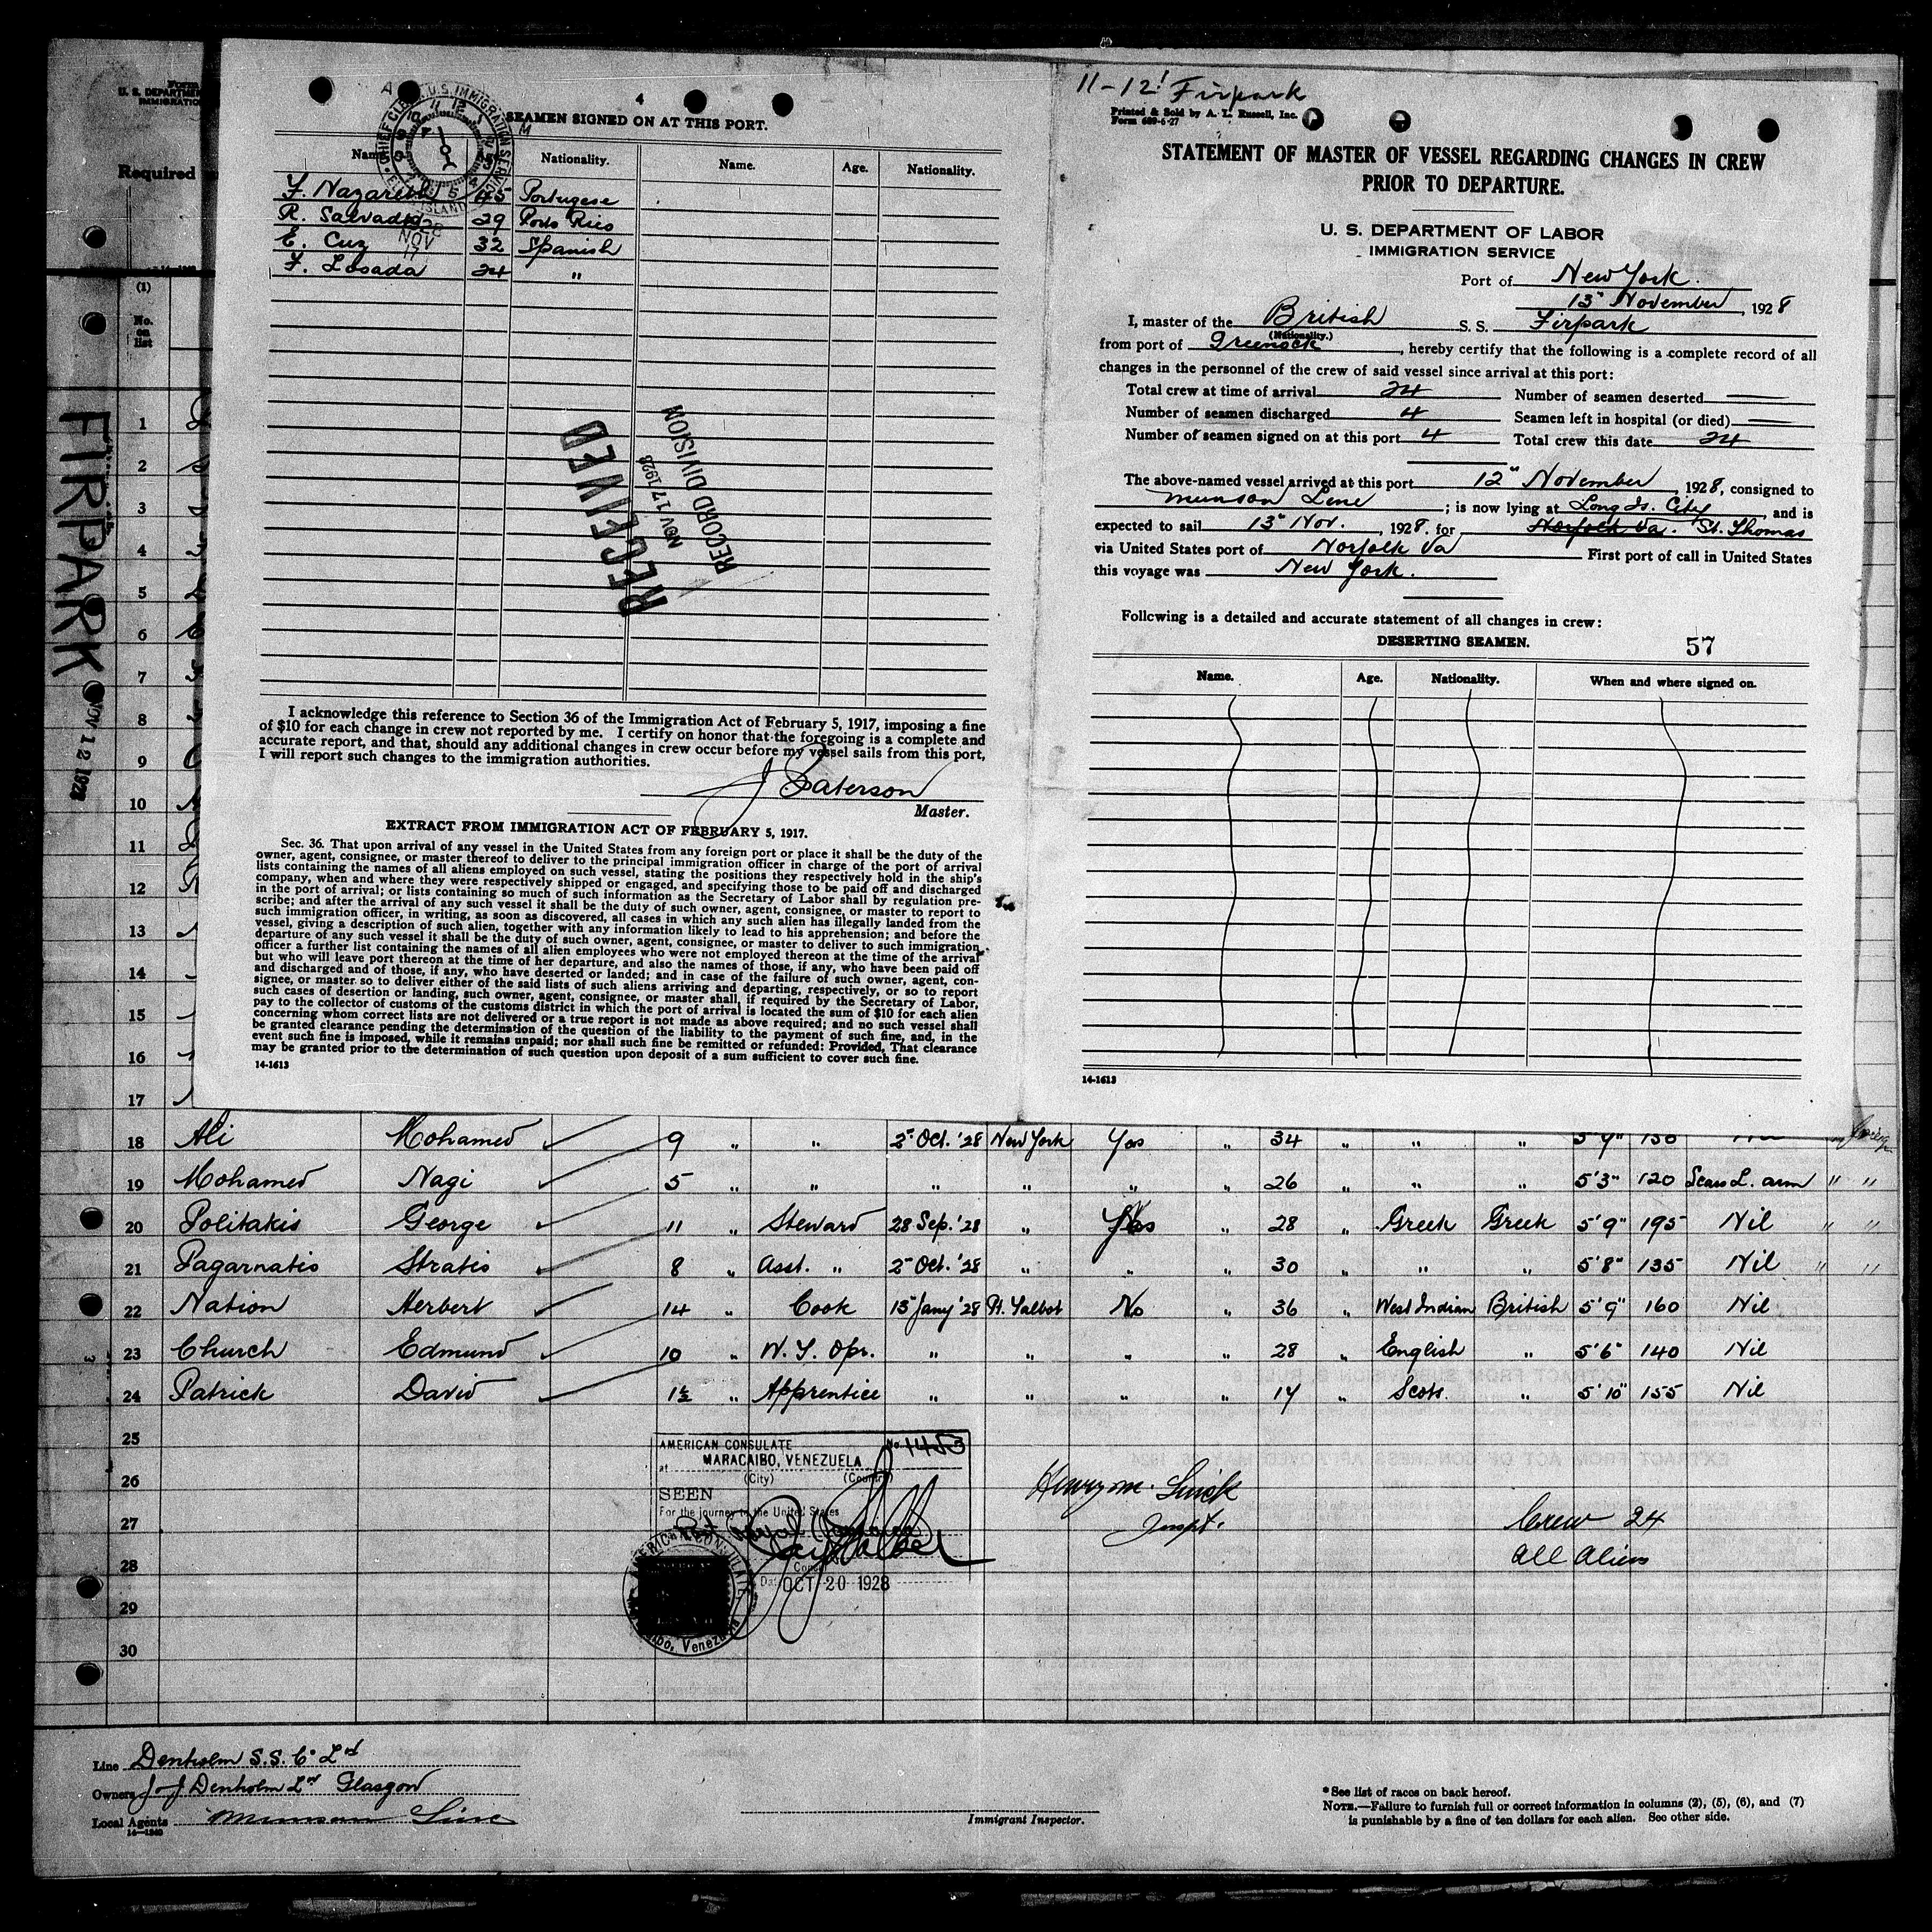 Form
U. S. DEPARTME
IMMIGRATIO
Required
(1)
No.
on
list
FIRPARK
NOV 12 1928
4
SEAMEN SIGNED ON AT THIS PORT.
CHIEF CLERK, U.S. IMMIGRATION SERVICE
ELLIS ISLAND
1928
NOV
17
Name. Nationality. Name. Age. Nationality.
F. Nazareth 45 Portugese
R. Salvador 29 Porto Rico
E. Cuz 32 Spanish
F. Losada 24 "
RECEIVED
NOV 17 1928
RECORD DIVISION
I acknowledge this reference to Section 36 of the Immigration Act of February 5, 1917, imposing a fine
of $10 for each change in crew not reported by me. I certify on honor that the foregoing is a complete and
accurate report, and that, should any additional changes in crew occur before my vessel sails from this port,
I will report such changes to the immigration authorities.
J Paterson
Master.
EXTRACT FROM IMMIGRATION ACT OF FEBRUARY 5, 1917.
Sec. 36. That upon arrival of any vessel in the United States from any foreign port or place it shall be the duty of the
owner, agent, consignee, or master thereof to deliver to the principal immigration officer in charge of the port of arrival
lists containing the names of all aliens employed on such vessel, stating the positions they respectively hold in the ship's
company, when and where they were respectively shipped or engaged, and specifying those to be paid off and discharged
in the port of arrival; or lists containing so much of such information as the Secretary of Labor shall by regulation pre-
scribe; and after the arrival of any such vessel it shall be the duty of such owner, agent, consignee, or master to report to
such immigration officer, in writing, as soon as discovered, all cases in which any such alien has illegally landed from the
vessel, giving a description of such alien, together with any information likely to lead to his apprehension; and before the
departure of any such vessel it shall be the duty of such owner, agent, consignee, or master to deliver to such immigration
officer a further list containing the names of all alien employees who were not employed thereon at the time of the arrival
but who will leave port thereon at the time of her departure, and also the names of those, if any, who have been paid off
and discharged and of those, if any, who have deserted or landed; and in case of the failure of such owner, agent, con-
signee, or master so to deliver either of the said lists of such aliens arriving and departing, respectively, or so to report
such cases of desertion or landing, such owner, agent, consignee, or master shall, if required by the Secretary of Labor,
pay to the collector of customs of the customs district in which the port of arrival is located the sum of $10 for each alien
concerning whom correct lists are not delivered or a true report is not made as above required; and no such vessel shall
be granted clearance pending the determination of the question of the liability to the payment of such fine, and, in the
event such fine is imposed, while it remains unpaid; nor shall such fine be remitted or refunded: Provided, That clearance
may be granted prior to the determination of such question upon deposit of a sum sufficient to cover such fine.
14-1613
11-12' Firpark
Printed & Sold by A. L. Russell, Inc.
Form 689-6-27
STATEMENT OF MASTER OF VESSEL REGARDING CHANGES IN CREW
PRIOR TO DEPARTURE.
U. S. DEPARTMENT OF LABOR
IMMIGRATION SERVICE
Port of New York.
13" November, 1928
I, master of the British S. S. Firpark
(Nationality.)
from port of Greenock, hereby certify that the following is a complete record of all
changes in the personnel of the crew of said vessel since arrival at this port:
Total crew at time of arrival 24 Number of seamen deserted
Number of seamen discharged 4 Seamen left in hospital (or died)
Number of seamen signed on at this port 4 Total crew this date 24
The above-named vessel arrived at this port 12" November, 1928, consigned to
Munson Line; is now lying at Long Is. City, and is
expected to sail 13" Nov., 1928, for Norfolk Va. St. Thomas
via United States port of Norfolk Va First port of call in United States
this voyage was New York.
Following is a detailed and accurate statement of all changes in crew:
DESERTING SEAMEN. 57
Name. Age. Nationality. When and where signed on.
14-1613
1
2
3
4
5
6
7
8
9
10
11
12
13
14
15
16
17
18 Ali Mohamed 9 " " 2" Oct. '28 New York Yes " 34 " " " 5'9" 150
19 Mohamed Nagi 5 " " " " " " 26 " " " 5'3" 120 Scars L. arm " "
20 Politakis George 11 " Steward 28 Sep. '28 " Yes " 28 " Greek Greek 5'9" 195 Nil " "
21 Pagarnatis Stratis 8 " Asst. " 2" Oct. '28 " " " 30 " " " 5'8" 135 Nil " "
22 Nation Herbert 14 " Cook 13" Jany '28 Pt. Talbot No " 36 " West Indian British 5'9" 160 Nil
23 Church Edmund 10 " W. T. Opr. " " " " 28 " English " 5'6" 140 Nil
24 Patrick David 1½ " Apprentice " " " " 17 " Scots. " 5'10" 155 Nil
25
26
27
28
29
30
AMERICAN CONSULATE No. 1453
at MARACAIBO, VENEZUELA
(City) (Country)
SEEN
For the journey to the United States
Port Royal Jamaica
Consul
Date OCT 20 1928
AMERICAN CONSULATE
Maracaibo, Venezuela
Henry M.
Inspt.
Crew 24
All Aliens
Line Denholm S.S. Co Ltd
Owners J & J Denholm Ltd Glasgow
Local Agents Munson Line
14-1240
Immigrant Inspector.
* See list of races on back hereof.
NOTE.—Failure to furnish full or correct information in columns (2), (5), (6), and (7)
is punishable by a fine of ten dollars for each alien. See other side.